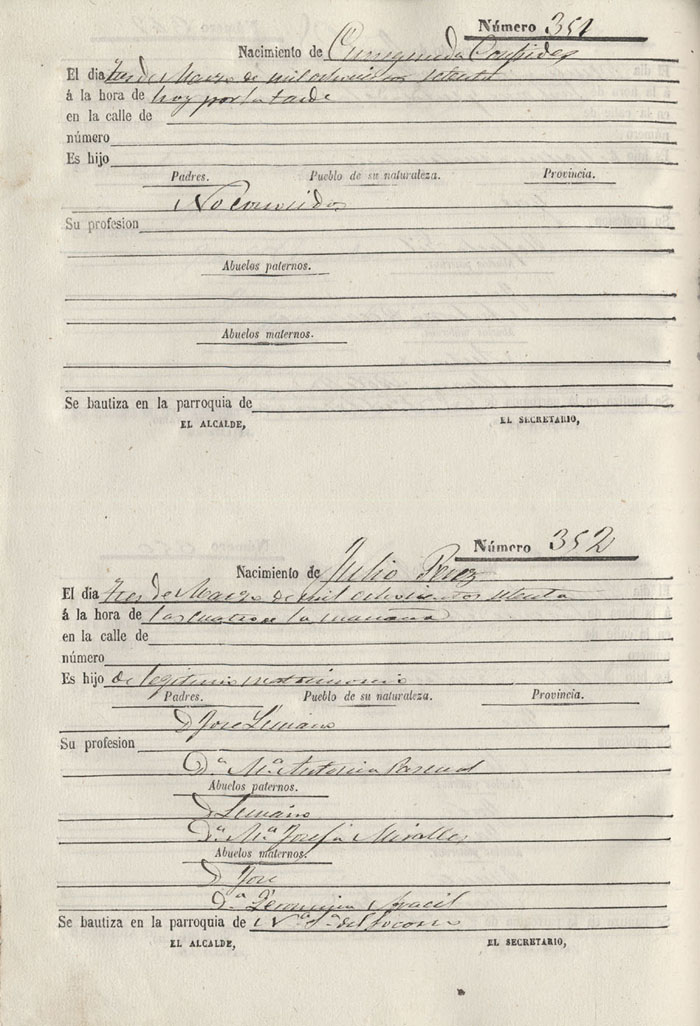 Número 351
Nacimiento de Cunegunda Céspedes
El dia tres de Marzo de mil ochocientos setenta
á la hora de hoy por la tarde
en la calle de
número
Es hijo
Padres. Pueblo de su naturaleza. Provincia.
No conocidos
Su profesion
Abuelos paternos.
Abuelos maternos.
Se bautiza en la parroquia de
EL ALCALDE, EL SECRETARIO,
Número 352
Nacimiento de Julio Perez
El dia tres de Marzo de mil ochocientos setenta
á la hora de las cuatro de la mañana
en la calle de
número
Es hijo de legitimo matrimonio
Padres. Pueblo de su naturaleza. Provincia.
D. Jose
Su profesion
D.ª M.ª Antonia Pascual
Abuelos paternos.
D.
D.ª M.ª Josefa Miralles
Abuelos maternos.
D. Jose
D.ª Geronima Aracil
Se bautiza en la parroquia de N.ª S.ª del Socorro
EL ALCALDE, EL SECRETARIO,